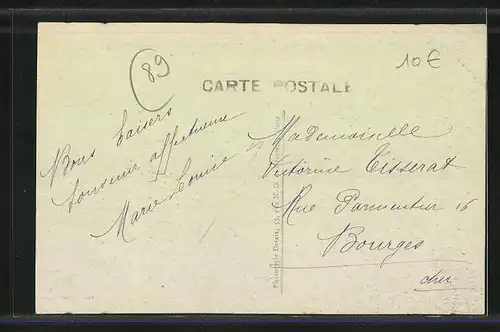 89
10€
CARTE POSTALE
Bons baisers
Souvenir affectueux
Marie Louise
Mademoiselle
Victorine Tisserat
Rue Parmentier 16
Bourges
Cher